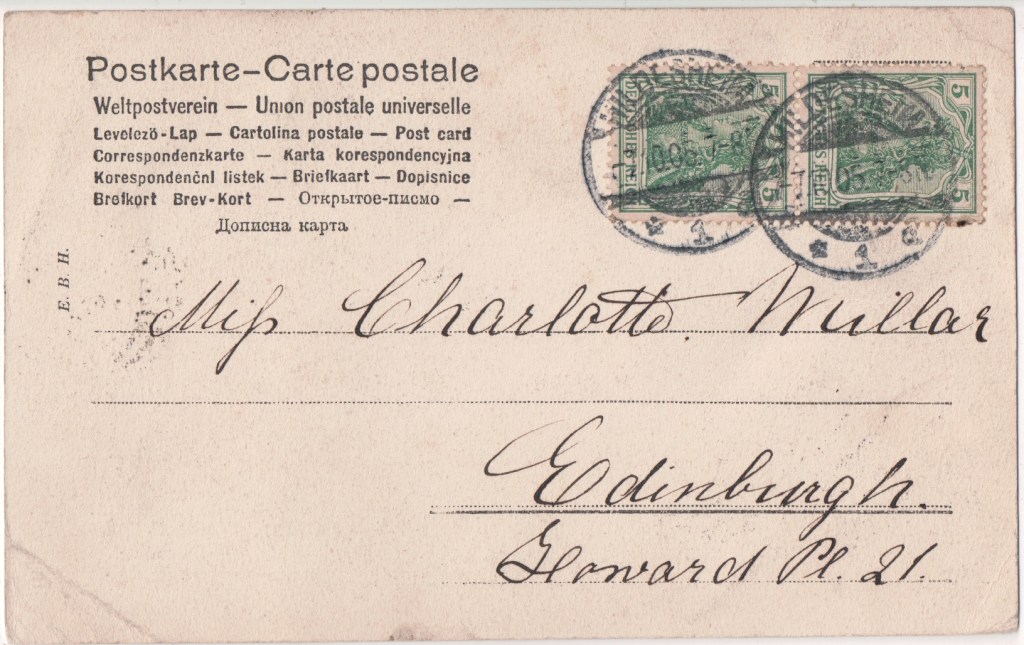 Postkarte – Carte postale
Weltpostverein — Union postale universelle
Levelező-Lap — Cartolina postale — Post card
Correspondenzkarte — Karta korespondencyjna
Korespondenční listek — Briefkaart — Dopisnice
Brefkort Brev-Kort — Открытое-письмо —
Дописна карта
E. B. H.
HILDESHEIM
5 5
HILDESHEIM
5 5
REICH
* 1
* 1 d
Miss Charlotte Millar
Edinburgh.
Howard Pl. 21.